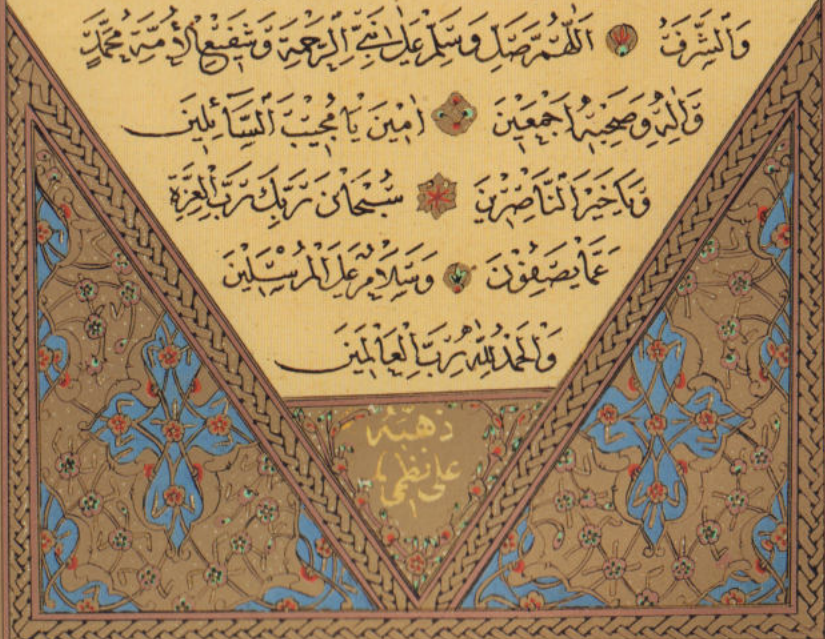 وَالشَّرَفِ اَللّٰهُمَّ صَلِّ وَسَلِّمْ عَلَى نَبِيِّ الرَّحْمَةِ وَشَفِيعِ الْاُمَّةِ مُحَمَّدٍ
وَاٰلِهِ وَصَحْبِهِ اَجْمَعِينَ اٰمِينَ يَا مُجِيبَ السَّائِلِينَ
وَيَا خَيْرَ النَّاصِرِينَ سُبْحَانَ رَبِّكَ رَبِّ الْعِزَّةِ
عَمَّا يَصِفُونَ وَسَلَامٌ عَلَى الْمُرْسَلِينَ
وَالْحَمْدُ لِلّٰهِ رَبِّ الْعَالَمِينَ
ذهبه
على نظمى